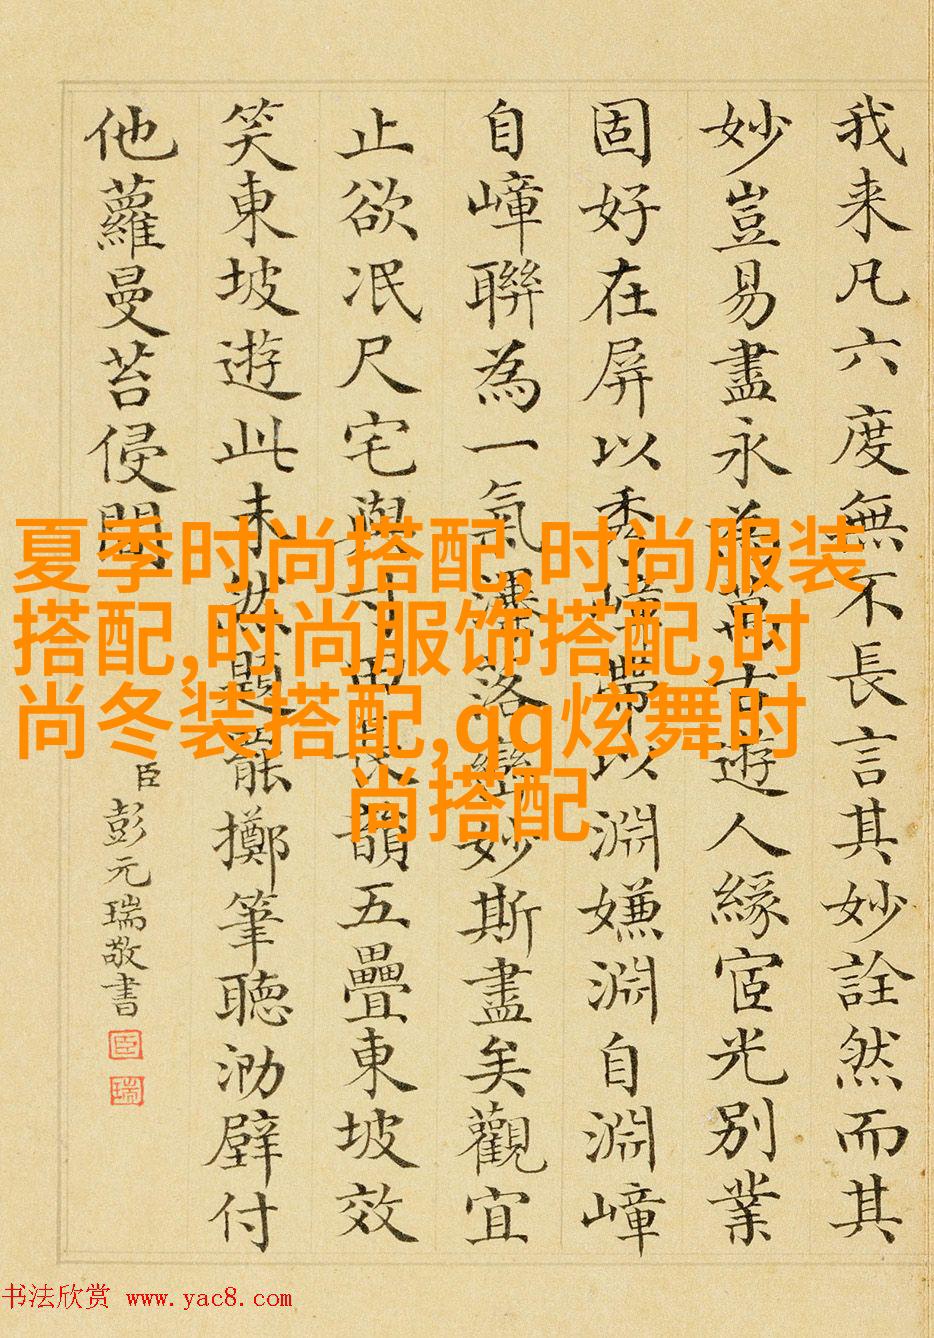 我来凡六度無不長言其妙詮然而其
妙豈易盡永為萬古遊人緣宦光別業
固好在屏以秀嶂帶以淵嫌淵自淵嶂
自嶂聯為一氣落妙斯盡矣觀宜
止欲泯尺宅與寸田長韻五疊東坡效
笑東坡遊此未然題罷擲筆聽泐壁付
他蘿曼苔侵
臣彭元瑞敬書
臣
瑞
夏季时尚搭配,时尚服装
搭配,时尚服饰搭配,时
尚冬装搭配,qq炫舞时
尚搭配
书法欣赏 www.yac8.com